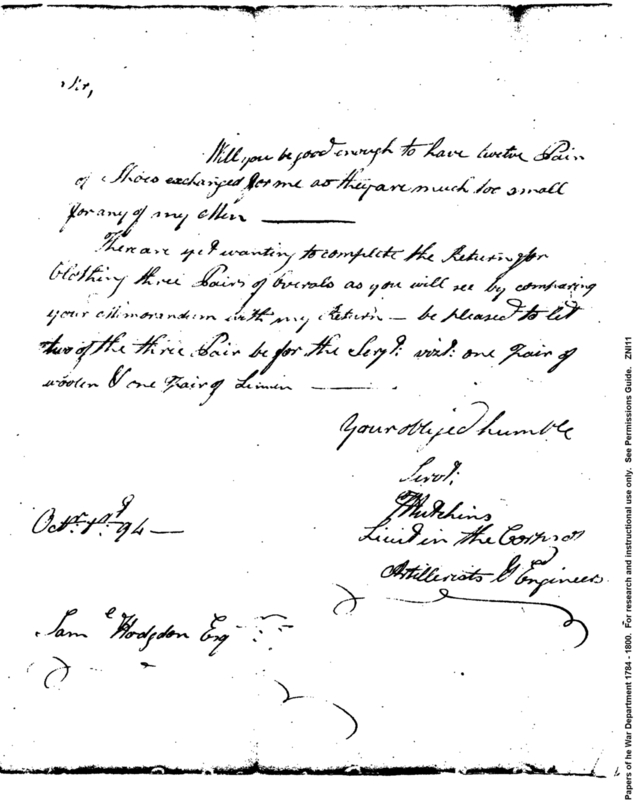 Sir,
Will you be good enough to have twelve Pair
of Shoes exchanged for me as they are much too small
for any of my Men
There are yet wanting to complete the Return for
Clothing three Pairs of Overals as you will see by comparing
your Memorandum with my Return — be pleased to let
two of the three Pair be for the Sergt: vizt: one Pair of
woolen & one Pair of Linnen
Your obliged humble
Servt:
Hutchins
Lieut in the Corps of
Artillerists & Engineers
Octr. 1st 94 —
Saml Hodgdon Esq
Papers of he War Department 1784 - 1800. For research and instructional use only. See Permissions Guide. ZNI11